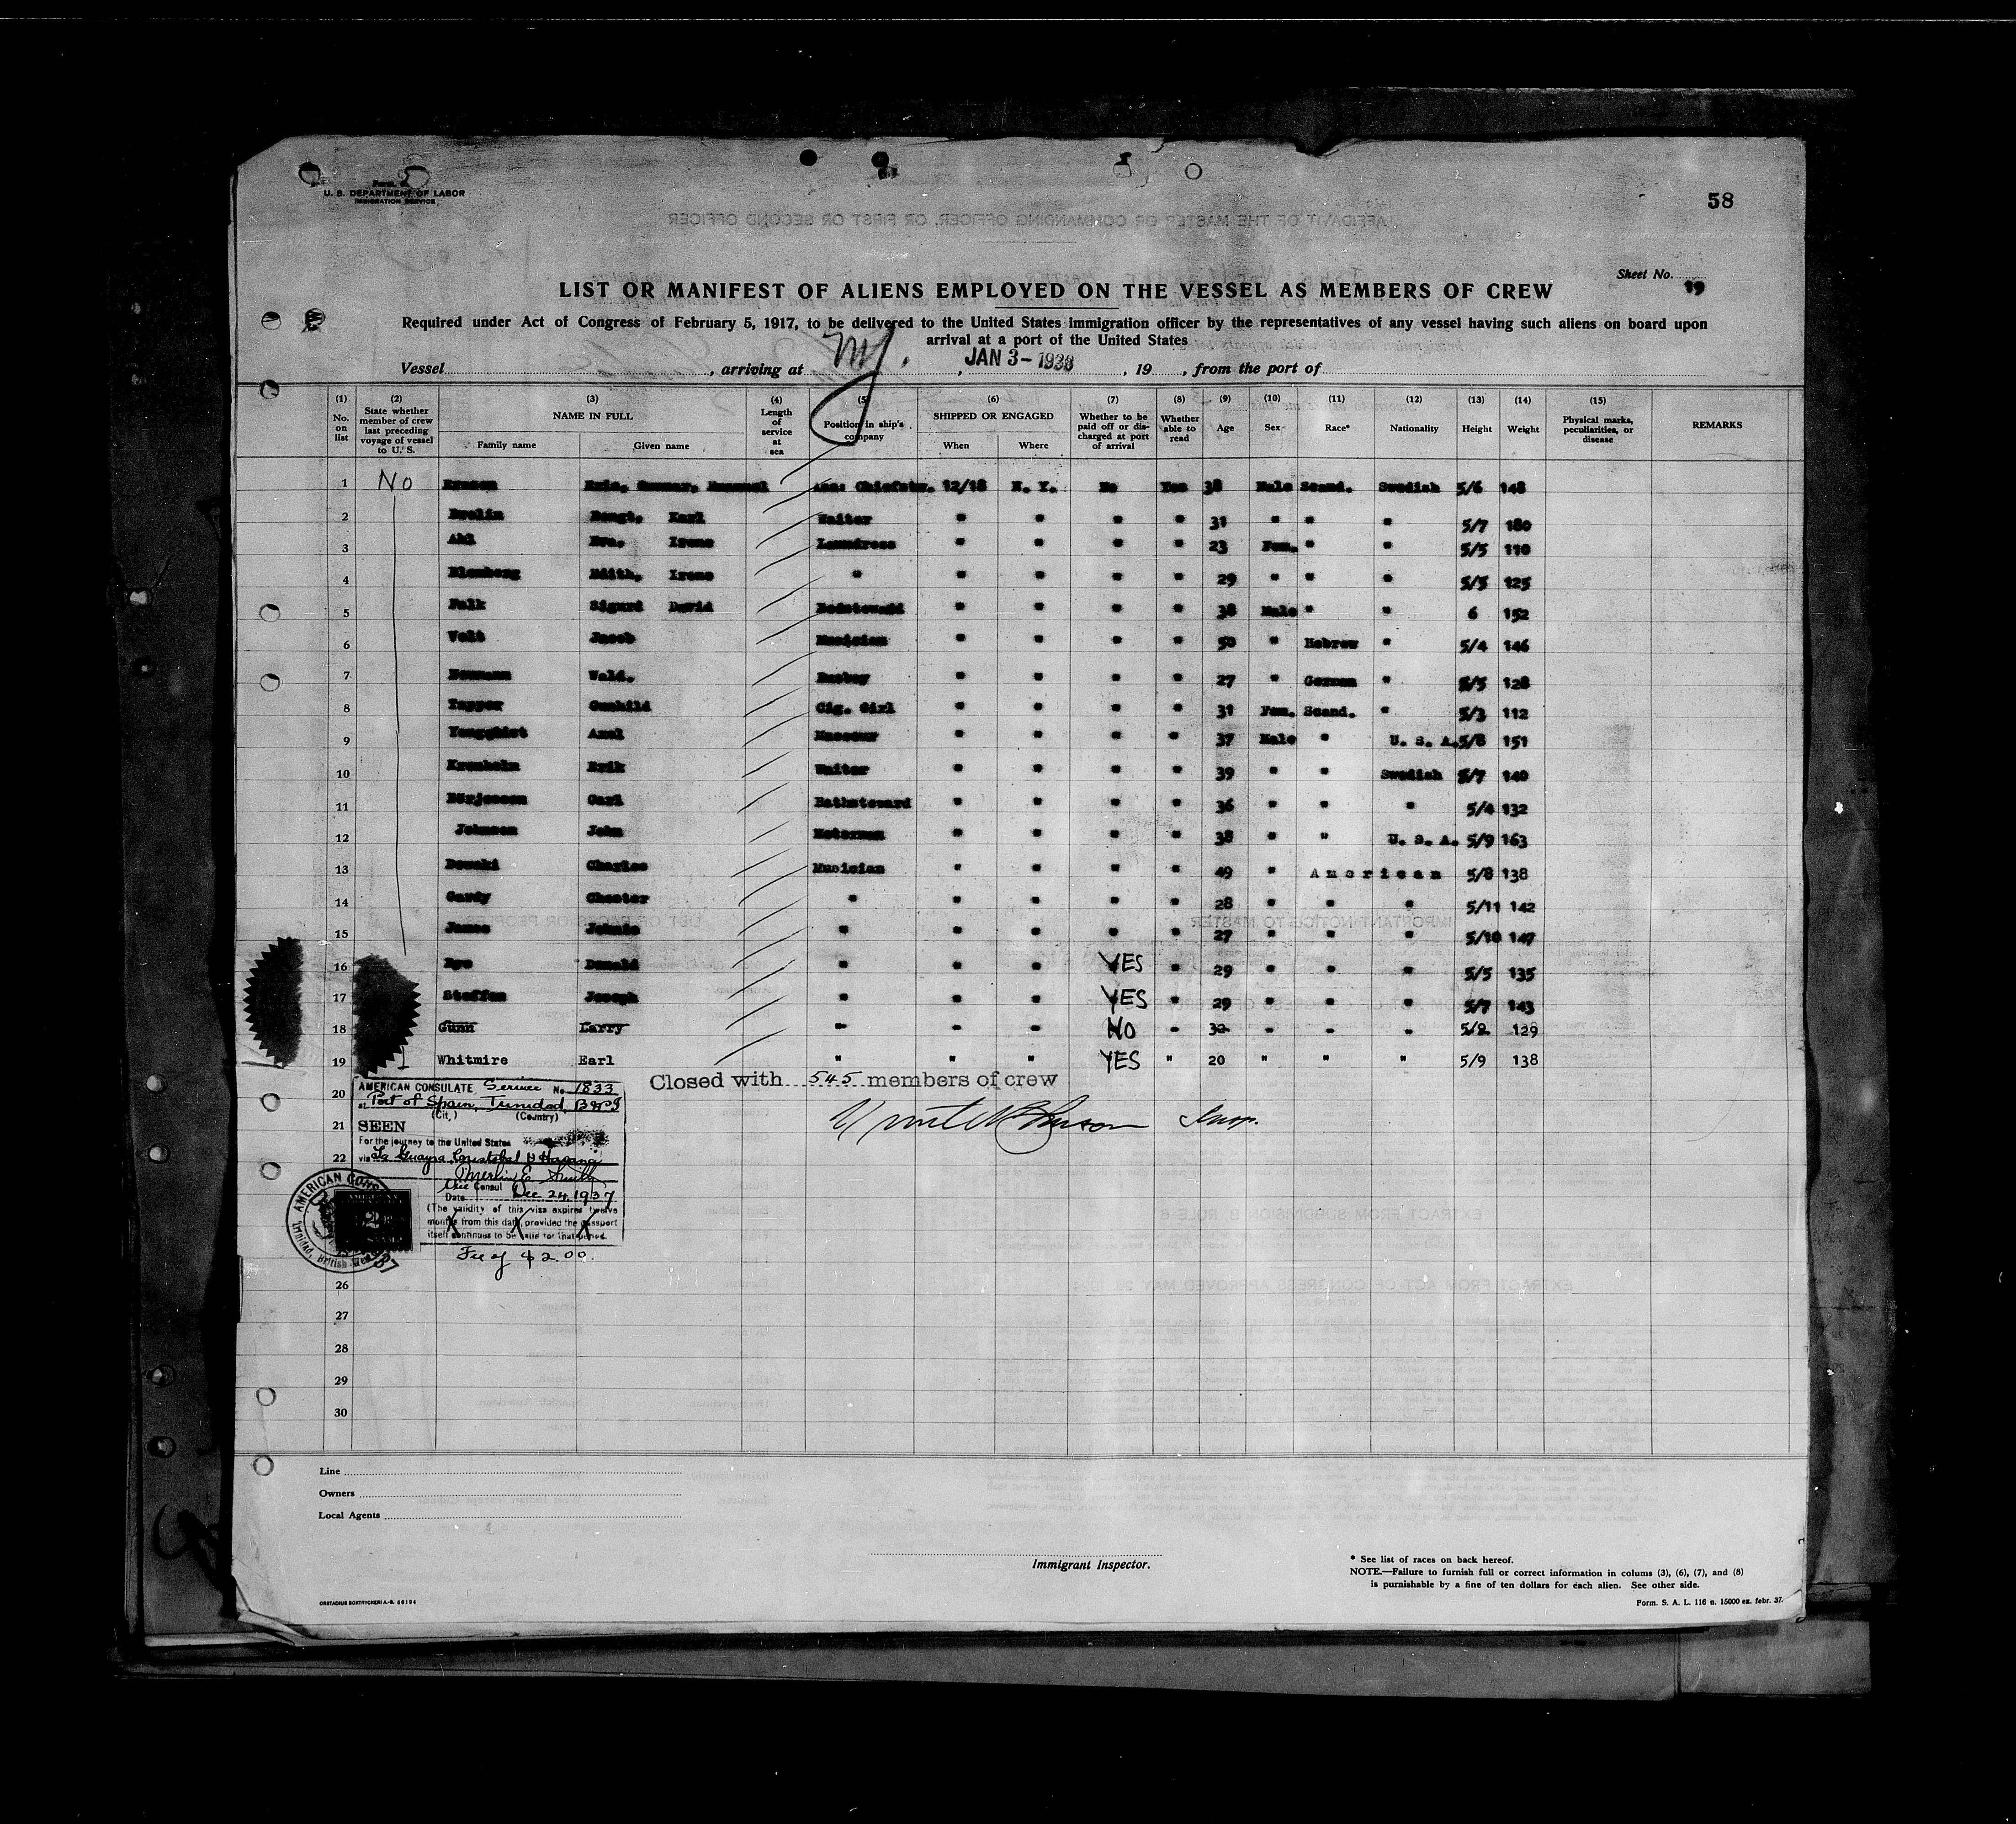 Form
U. S. DEPARTMENT OF LABOR
IMMIGRATION SERVICE
58
Sheet No. 19
LIST OR MANIFEST OF ALIENS EMPLOYED ON THE VESSEL AS MEMBERS OF CREW
Required under Act of Congress of February 5, 1917, to be delivered to the United States Immigration officer by the representatives of any vessel having such aliens on board upon
arrival at a port of the United States
Vessel , arriving at NY. , JAN 3 - 1938 , 19 , from the port of
(1) No. on list (2) State whether member of crew last preceding voyage of vessel to U. S. (3) NAME IN FULL Family name Given name (4) Length of service at sea (5) Position in ship's company (6) SHIPPED OR ENGAGED When Where (7) Whether to be paid off or discharged at port of arrival (8) Whether able to read (9) Age (10) Sex (11) Race* (12) Nationality (13) Height (14) Weight (15) Physical marks, peculiarities, or disease REMARKS
1 No Gunnar, 12/18 N. Y. No Yes 38 Male Scand. Swedish 5/6 148
2 Bengt, Karl Waiter " " " " 31 " " " 5/7 180
3 Ahl Eva, Irene Laundress " " " " 23 Fem. " " 5/5 110
4 Blomberg Edith, Irene " " " " " 29 " " " 5/5 125
5 Falk Sigurd David Bedsteward " " " " 38 Male " " 6 152
6 Volt Jacob Musician " " " " 50 " Hebrew " 5/4 146
7 Neumann Wald. " " " " 27 " German " 5/5 128
8 Tapper Gunhild Cig. Girl " " " " 31 Fem. Scand. " 5/3 112
9 Axel Masseur " " " " 37 Male " U. S. A. 5/8 151
10 Kronholm Erik Waiter " " " " 39 " " Swedish 5/7 140
11 Börjesson Carl Bathsteward " " " " 36 " " " 5/4 132
12 Johnson John Motorman " " " " 38 " " U. S. A. 5/9 163
13 Charles Musician " " " " 49 " American 5/8 138
14 Gardy Chester " " " " " 28 " " " 5/11 142
15 James Johnie " " " " " 27 " " " 5/10 147
16 Donald " " " YES " 29 " " " 5/5 135
17 Steffen Joseph " " " YES " 29 " " " 5/7 143
18 Gunn Larry " " " NO " 32 " " " 5/2 129
19 Whitmire Earl " " " YES " 20 " " " 5/9 138
Closed with 545 members of crew
Insp.
20
21
22
AMERICAN CONSULATE Service No. 1833
at Port of Spain, Trinidad, B.W.I.
(City) (Country)
SEEN
For the journey to the United States
via La Guayra, Cristobal & Havana
Merlin E. Smith
Vice Consul
Date Dec. 24, 1937
(The validity of this visa expires twelve
months from this date provided the passport
itself continues to be valid for that period.
Fee of $2.00.
AMERICAN CONS
Trinidad, British
26
27
28
29
30
Line
Owners
Local Agents
Immigrant Inspector.
* See list of races on back hereof.
NOTE.—Failure to furnish full or correct information in colums (3), (6), (7), and (8)
is punishable by a fine of ten dollars for each alien. See other side.
ORSTADIUS BOKTRYCKERI A.-B.
Form. S. A. L. 116 n. 15000 ex. febr. 37.